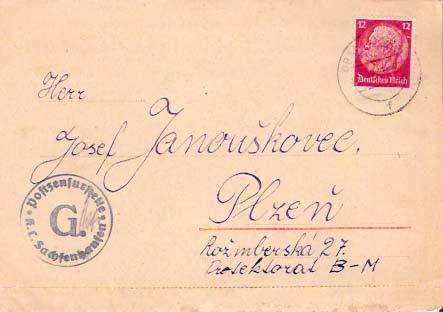 12 12
Deutsches Reich
Herr
Josef Janouškovec,
Plzeň
Rožmberská 27.
Protektorat B-M
Postzensurstelle
G.
K.L. Sachsenhausen